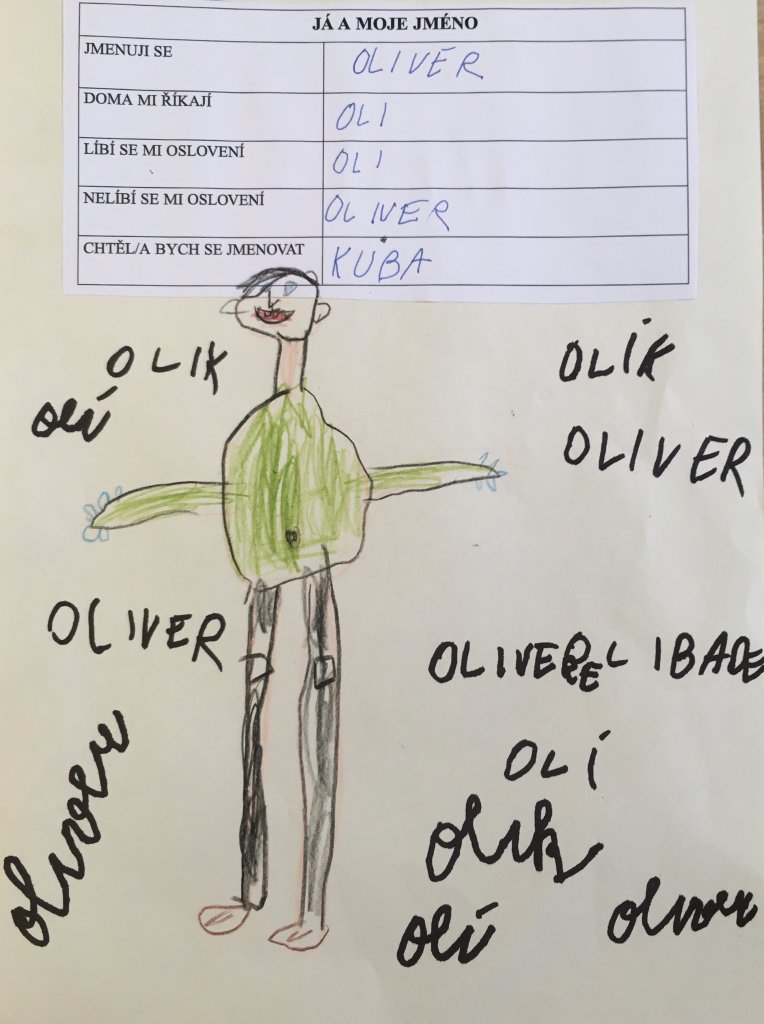 JÁ A MOJE JMÉNO
JMENUJI SE OLIVER
DOMA MI ŘÍKAJÍ OLI
LÍBÍ SE MI OSLOVENÍ OLI
NELÍBÍ SE MI OSLOVENÍ OLIVER
CHTĚL/A BYCH SE JMENOVAT KUBA
OLIK
OLÍK
olí
OLIVER
OLIVER
OLÍ
oliver
olik
olí
oliver